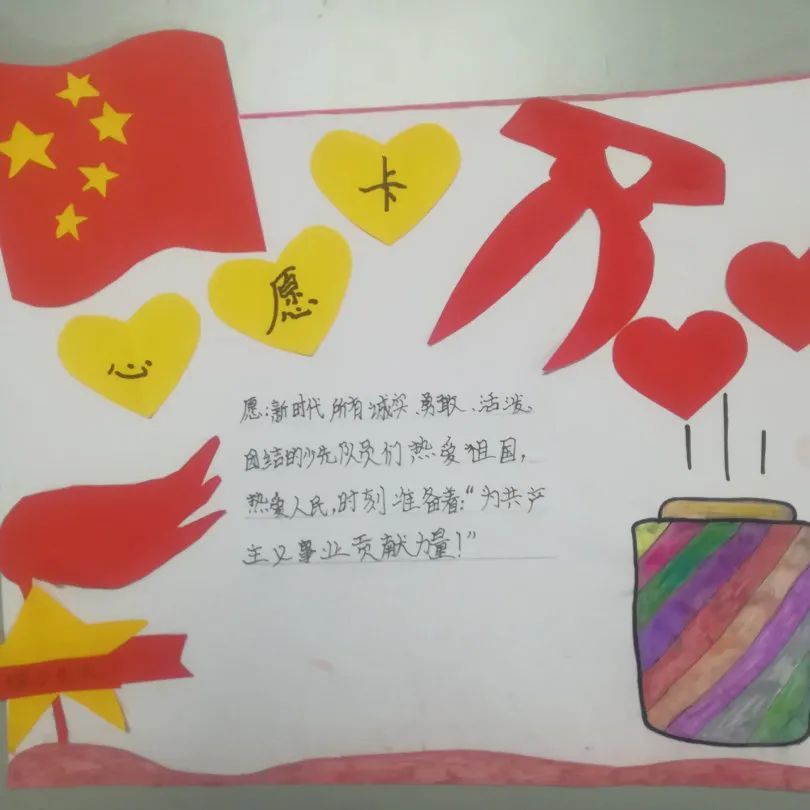 心愿卡
愿:新时代所有诚实、勇敢、活泼、
团结的少先队员们热爱祖国,
热爱人民,时刻准备着:“为共产
主义事业贡献力量!”